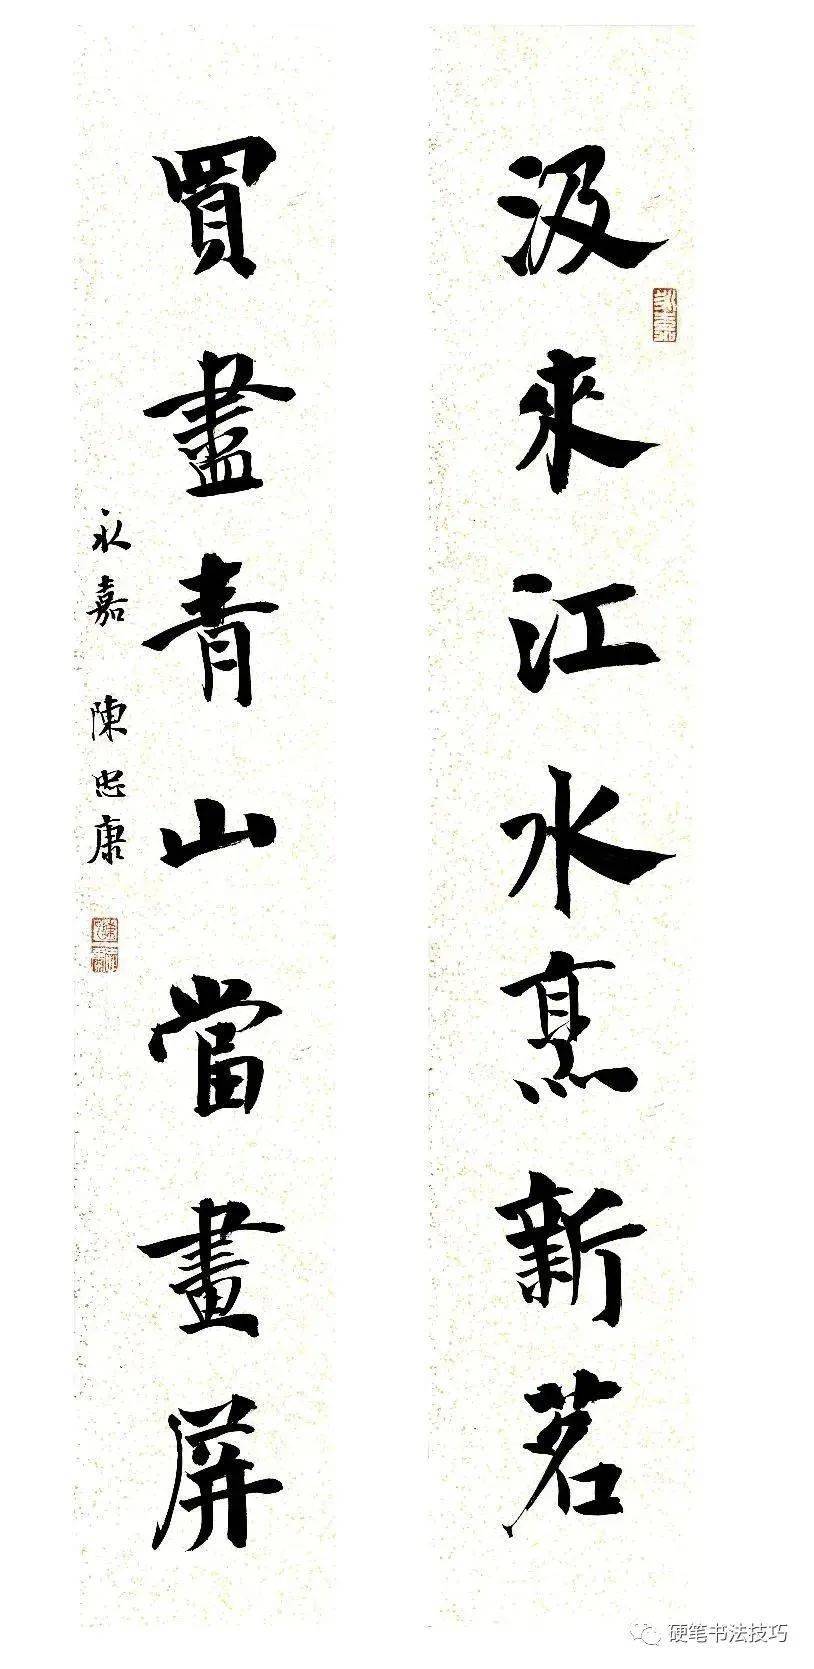 汲來江水烹新茗
買盡青山當畫屏
永嘉 陳忠康
硬笔书法技巧